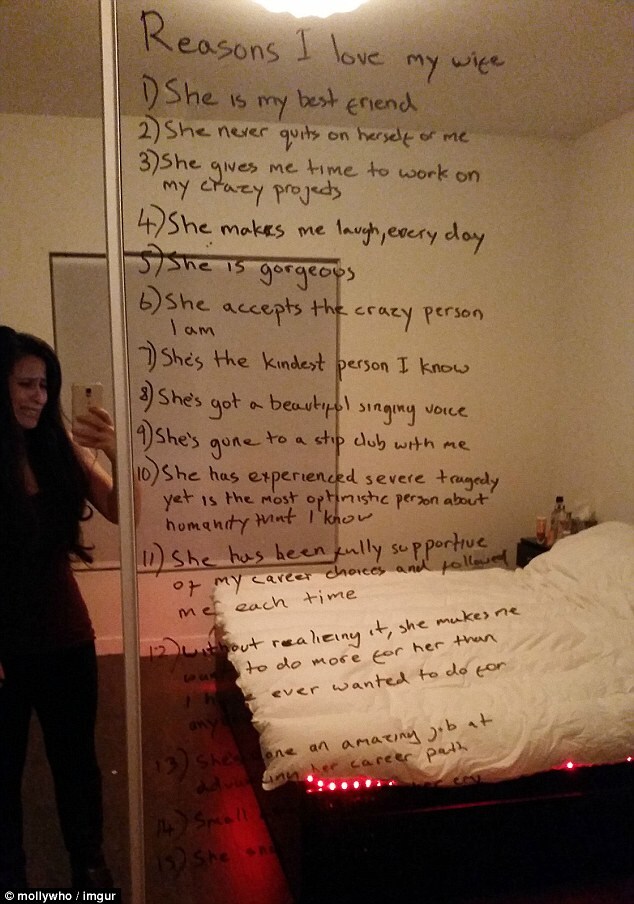 Reasons I love my wife
1) She is my best friend
2) She never quits on herself or me
3) She gives me time to work on
my crazy projects
4) She makes me laugh, every day
5) She is gorgeous
6) She accepts the crazy person
I am
7) She's the kindest person I know
8) She's got a beautiful singing voice
9) She's gone to a stip club with me
10) She has experienced severe tragedy
yet is the most optimistic person about
humanity that I know
11) She has been fully supportive
of my career choices and followed
me each time
12) Without realizing it, she makes me
want to do more for her than
I have ever wanted to do for
any
13) She's done an amazing job at
advancing her career path
14) Small her cry
15) She
© mollywho / imgur